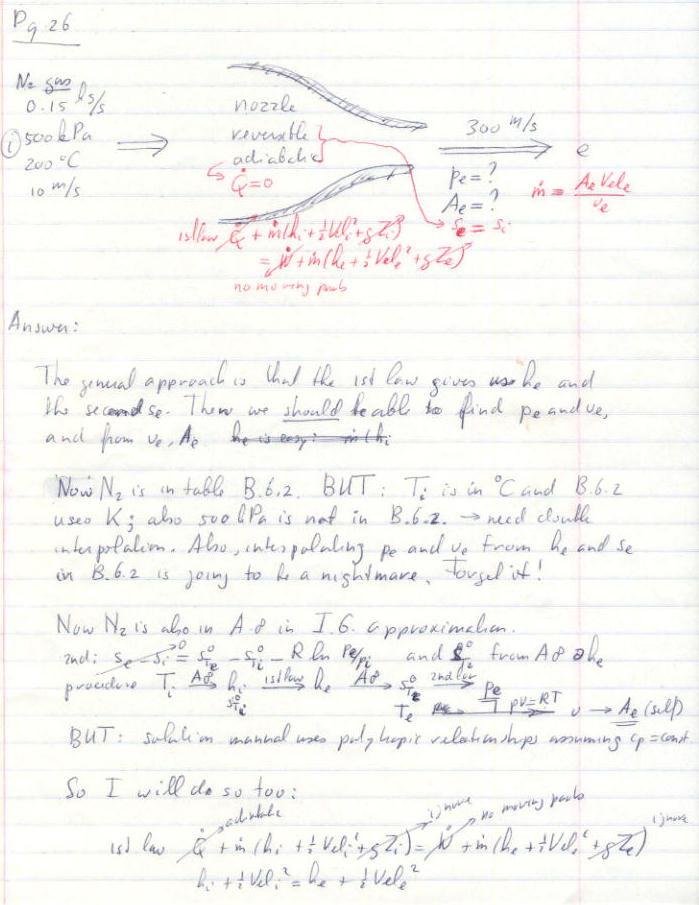 Pg. 26
N₂ gas
0.15 kg/s
① 500 kPa
200 °C
10 m/s
nozzle
reversible
adiabatic
Q̇=0
300 m/s
e
Pe=?
Ae=?
ṁ = Ae Vele / ve
se = si
1st law Q̇ + ṁ(hi + ½Veli² + gZi)
= Ẇ + ṁ(he + ½Vele² + gZe)
no moving parts
Answer:
The general approach is that the 1st law gives us he and
the second se. Then we should be able to find pe and ve,
and from ve, Ae he is easy: ṁ(hi
Now N₂ is in table B.6.2. BUT: Ti is in °C and B.6.2
uses K; also 500 kPa is not in B.6.2. → need double
interpolation. Also, interpolating pe and ve from he and se
in B.6.2 is going to be a nightmare. Forget it!
Now N₂ is also in A.8 in I.G. approximation.
2nd: se - si = s°Te - s°Ti - R ln Pe/Pi and s°T from A8 he
procedure Ti A8→ hi 1st law→ he A8→ s°Te 2nd law→ Pe
s°Ti Te pv=RT → v → Ae (self)
BUT: solution manual uses polytropic relationships assuming cp = const
So I will do so too:
adiabatic ignore no moving parts ignore
1st law Q̇ + ṁ(hi + ½Veli² + gZi) = Ẇ + ṁ(he + ½Vele² + gZe)
hi + ½Veli² = he + ½Vele²